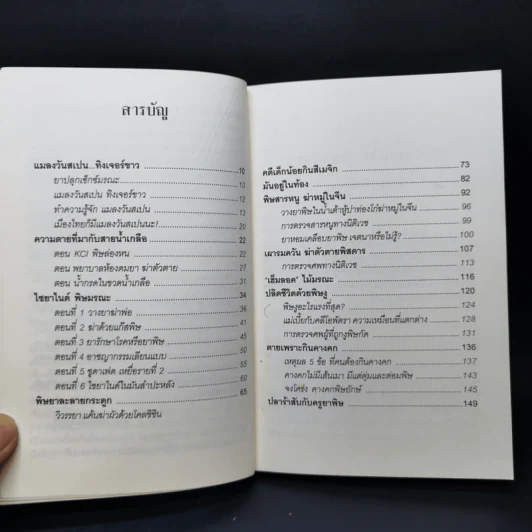 สารบัญ
แมลงวันสเปน...ทิงเจอร์ขาว 10
ยาปลุกเซ็กซ์มรณะ 10
แมลงวันสเปน ทิงเจอร์ขาว 12
ทำความรู้จัก แมลงวันสเปน 15
เมืองไทยก็มีแมลงวันสเปนนะ! 20
ความตายที่มากับสายน้ำเกลือ 22
ตอน KCl พิษล่องหน 22
ตอน พยาบาลห้องดมยา ฆ่าตัวตาย 27
ตอน น้ำกรดในขวดน้ำเกลือ 30
ไซยาไนด์ พิษมรณะ 34
ตอนที่ 1 วางยาฆ่าพ่อ 36
ตอนที่ 2 ฆ่าด้วยแก๊สพิษ 40
ตอนที่ 3 ยารักษาโรคหรือยาพิษ 45
ตอนที่ 4 อาชญากรรมเลียนแบบ 50
ตอนที่ 5 ซูดาเฟด เหยื่อรายที่ 2 55
ตอนที่ 6 ไซยาไนด์ในมันสำปะหลัง 60
พิษยาละลายกระดูก 65
วิวรรยา แค้นฆ่าผัวด้วยโคลชิซิน
คดีเด็กน้อยกินสีเมจิก 73
มันอยู่ในท้อง 82
พิษสารหนู ฆ่าหมู่ในจีน 92
วางยาพิษในน้ำเต้าหู้ปาท่องโก๋ฆ่าหมู่ในจีน 96
การตรวจสารหนูทางนิติเวช 99
ยาหอมเคลือบยาพิษ เจตนาหรือไม่รู้? 101
เมารมควัน ฆ่าตัวตายพิสดาร 107
การตรวจศพทางนิติเวช 113
"เซ็มลอค" ไม้มรณะ 116
ปลิดชีวิตด้วยพิษงู 120
พิษงูอะไรแรงที่สุด? 124
แม่เบี้ยกับคลีโอพัตรา ความเหมือนที่แตกต่าง 128
การตรวจศพผู้ที่ถูกงูพิษกัด 133
ตายเพราะกินคางคก 136
เหตุผล 5 ข้อ ที่คนต้องกินคางคก 137
คางคกไม่มีเส้นเมา มีแต่ตุ่มและต่อมพิษ 143
จงโคร่ง คางคกพิษยักษ์ 145
ปลาร้าสับกับครูยาพิษ 149